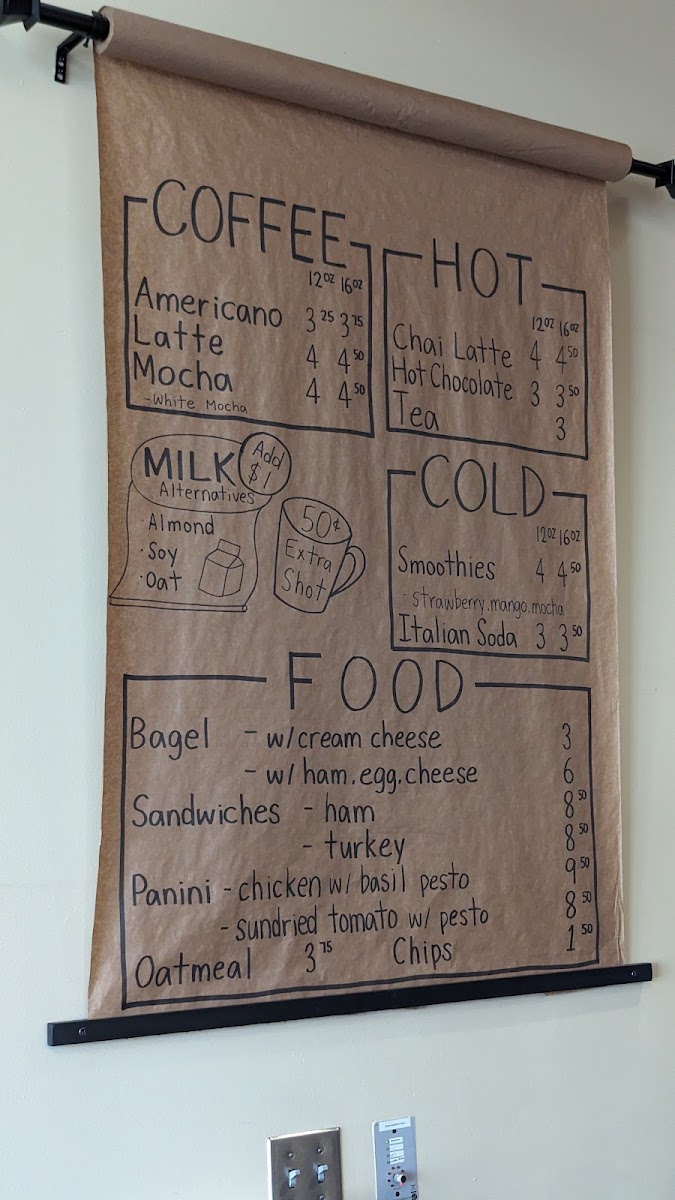 COFFEE
12oz 16oz
Americano 3 25 3 75
Latte 4 4 50
Mocha 4 4 50
-White Mocha
HOT
12oz 16oz
Chai Latte 4 4 50
Hot Chocolate 3 3 50
Tea 3
MILK
Alternatives
Add
$1
·Almond
·Soy
·Oat
50¢
Extra
Shot
COLD
12oz 16oz
Smoothies 4 4 50
- strawberry.mango.mocha
Italian Soda 3 3 50
FOOD
Bagel - w/cream cheese 3
- w/ham.egg.cheese 6
Sandwiches - ham 8 50
- turkey 8 50
Panini - chicken w/ basil pesto 9 50
- sundried tomato w/ pesto 8 50
Oatmeal 3 75 Chips 1 50